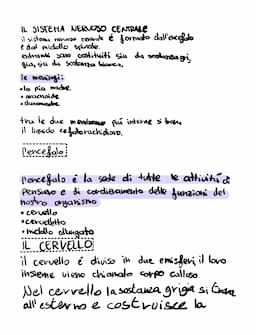 IL SISTEMA NERVOSO CENTRALE
il sistema nervoso centrale è formato dall'encefalo
e dal midollo spinale.
entrambi sono costituiti sia da sostanza gri,
gia, sia da sostanza bianca.
le meningi:
• la pia madre
• aracnoide
• duramadre
tra le due membrane più interne si trova
il liquido cefalorachidiano.
l'encefalo:
l'encefalo è la sede di tutte le attività di
pensiero e di cordinamento delle funzioni del
nostro organismo
• cervello
• cervelletto
• midollo allungato
IL CERVELLO
il cervello è diviso in due emisferi, il loro
insieme viene chiamato corpo calloso.
Nel cervello la sostanza grigia si trova
all'esterno e costruisce la